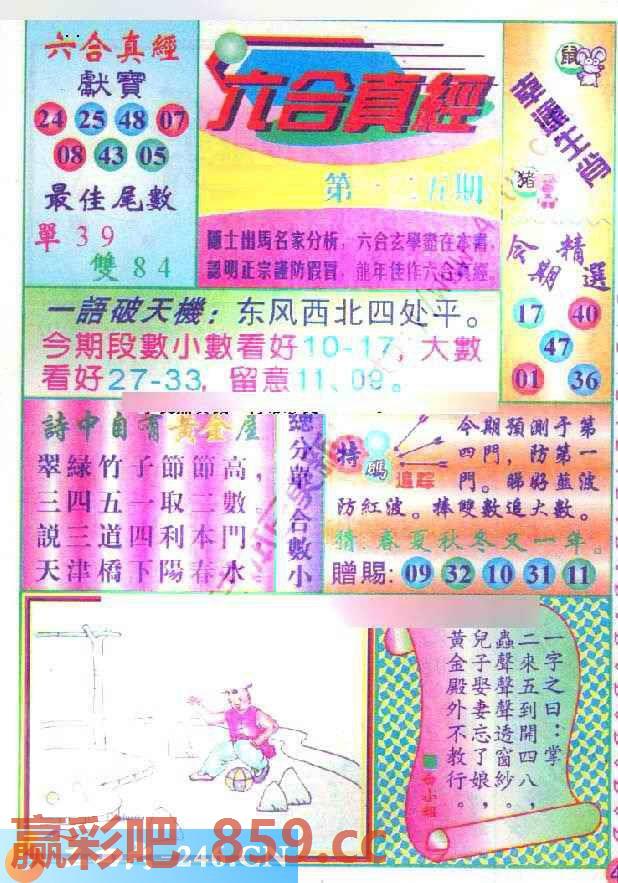 六合真經
獻寶
24 25 48 07
08 43 05
最佳尾數
單 3 9
雙 8 4
六合真經
五期
隱士出馬名家分析，六合玄學盡在本書，
認明正宗謹防假冒，龍年佳作六合真經。
鼠
幸運生肖
豬
今期精選
17 40
47
01 36
一語破天機：东风西北四处平。
今期段數小數看好10-17，大數
看好27-33，留意11、09。
詩中自有黃金屋
翠綠竹子節節高，
三四五一取二數。
説三道四利本門
天津橋下陽春水
總分單合數小
特碼
追踪
今期預測于第
四門，防第一
門。睇好藍波
防紅波。捧雙數追大數。
猜：春夏秋冬又一年。
贈賜：09 32 10 31 11
一字之曰：掌
二來五到開四八，
蟲聲聲聲透窗紗。
兒子娶妻忘了娘，
黃金殿外不教行。
赢彩吧 859.cc
246.CN